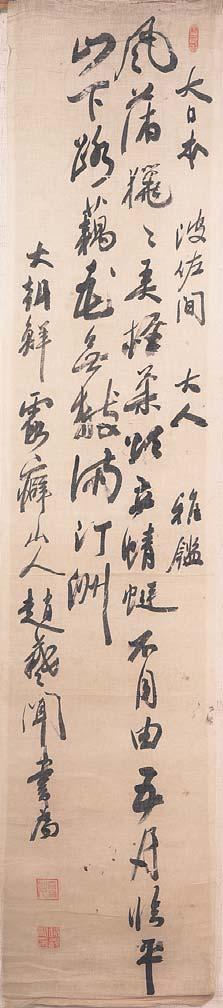 大日本 波佐間 大人 雅鑑
風蒲獵〻弄輕柔欲立蜻蜓不自由五月臨平
山下路藕花無數滿汀洲
大朝鮮 癖山人趙聞書